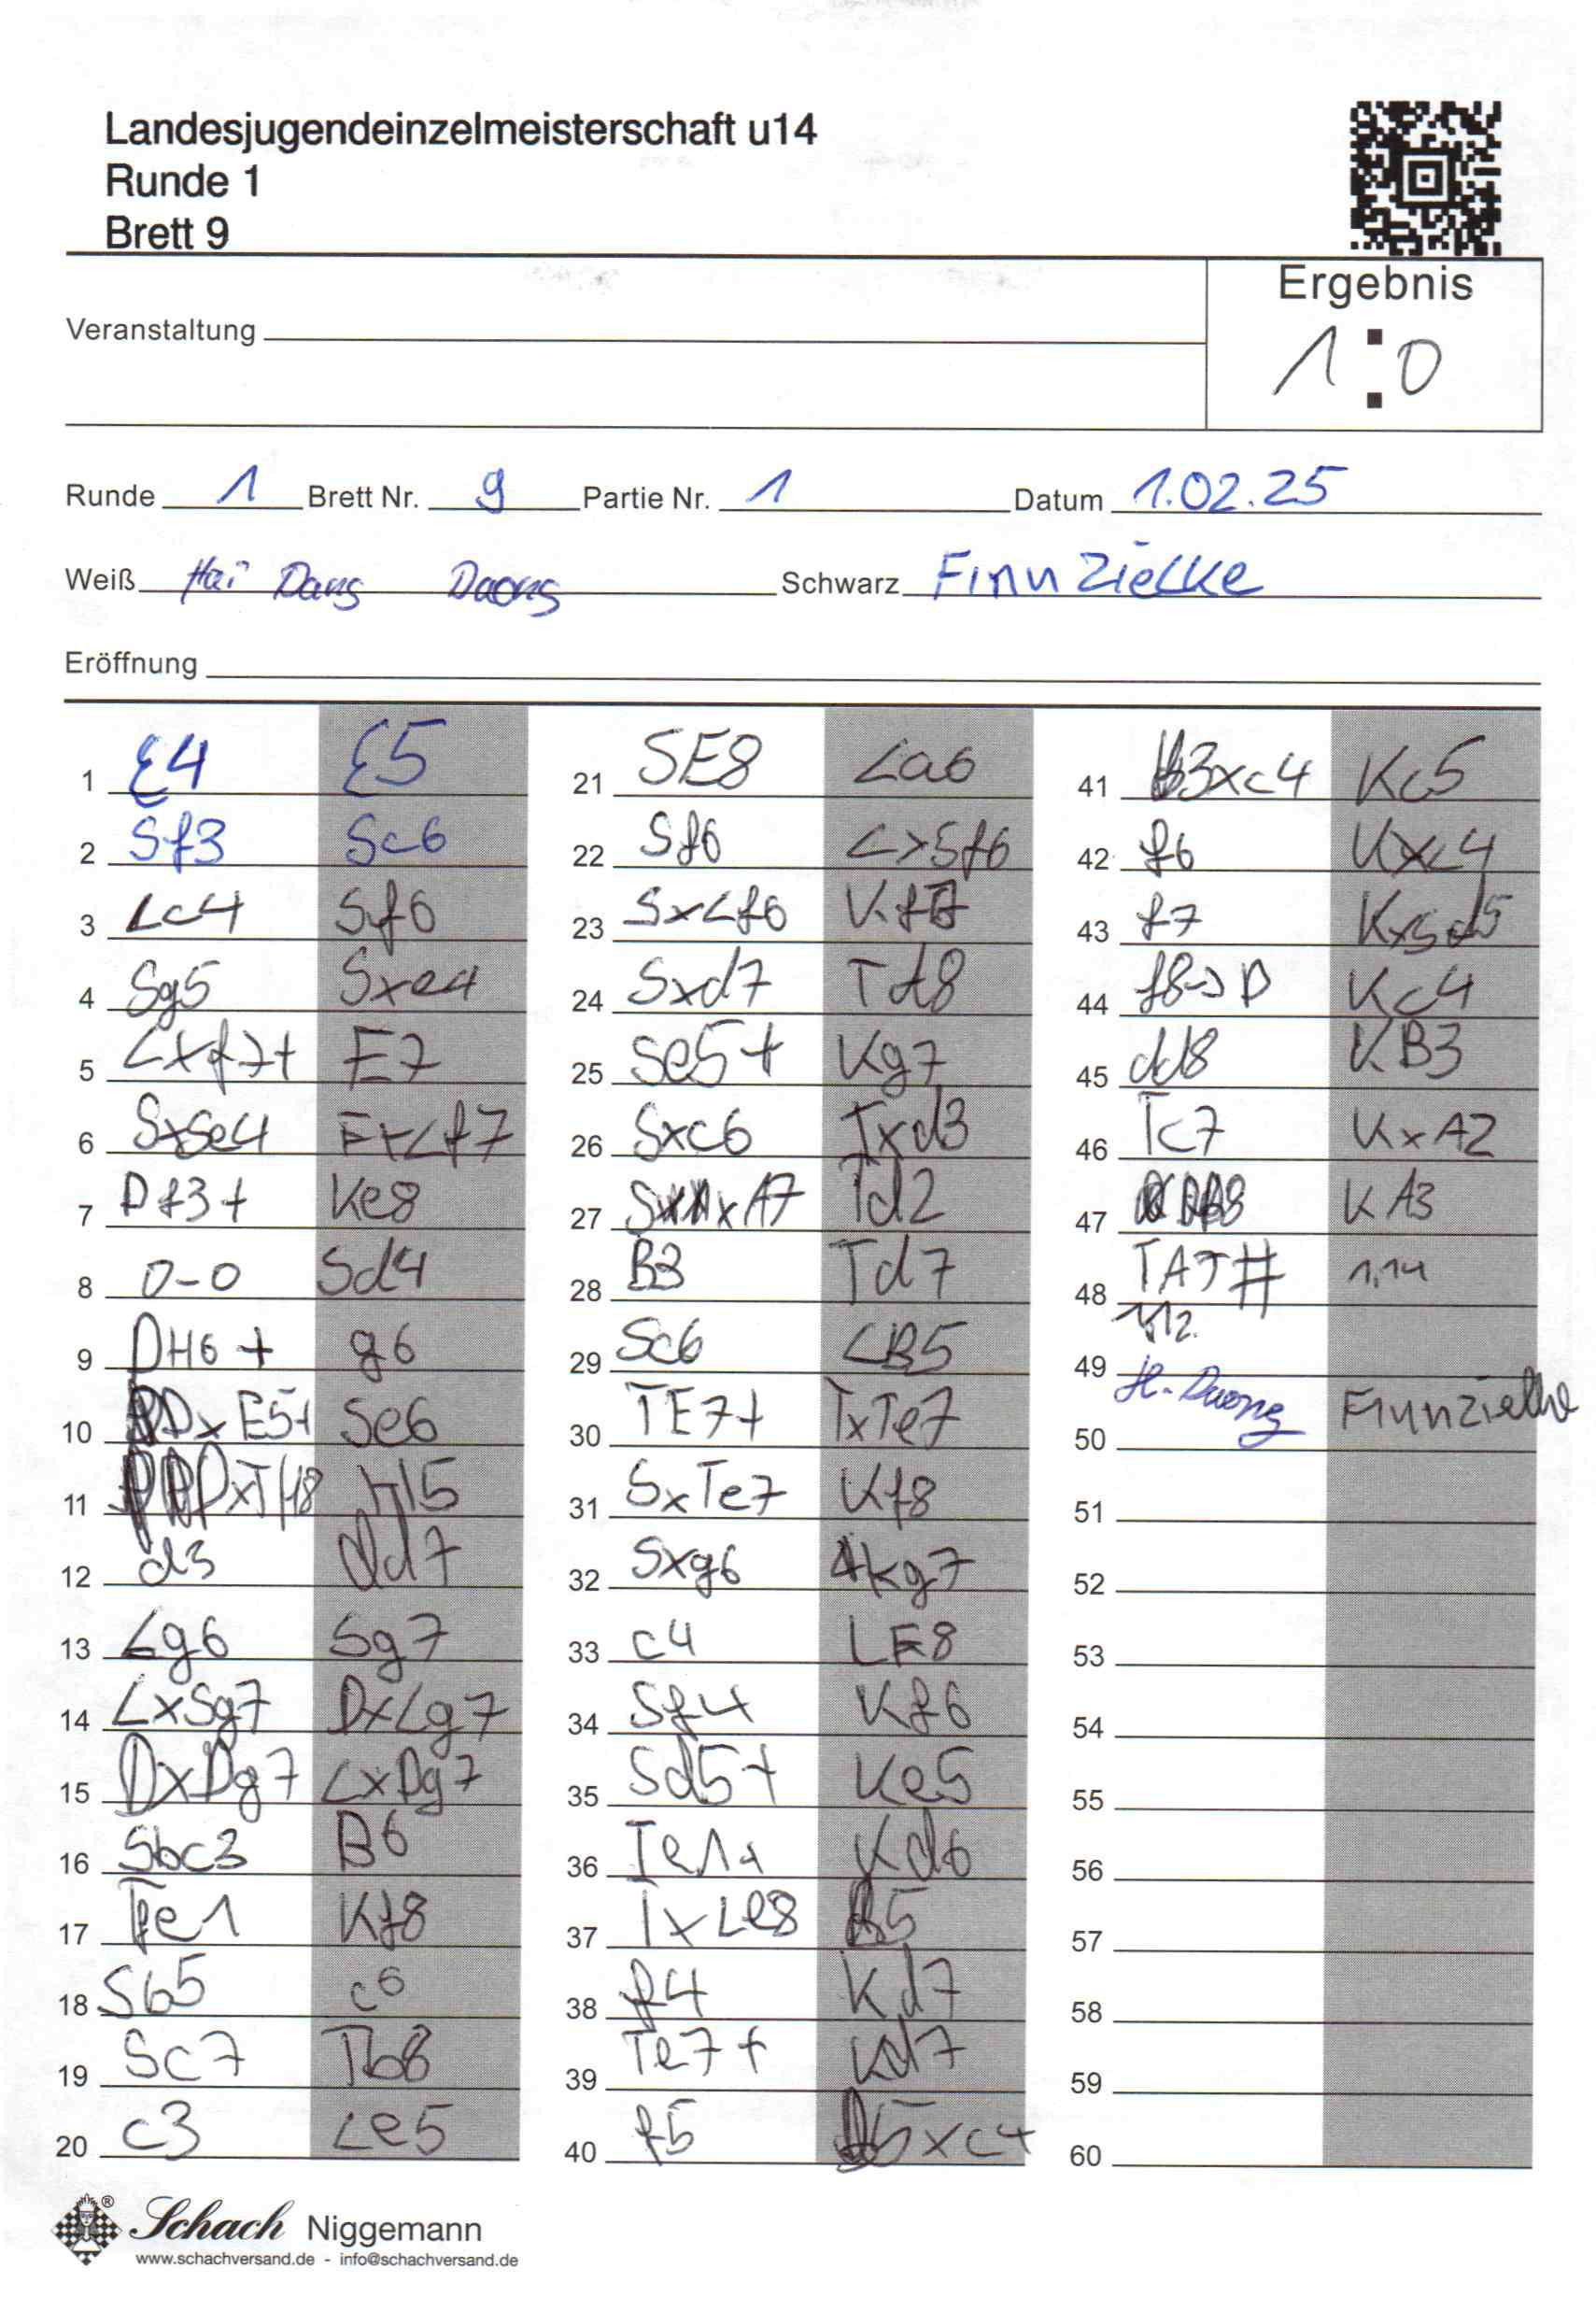 Landesjugendeinzelmeisterschaft u14
Runde 1
Brett 9
Ergebnis
1:0
Veranstaltung
Runde 1 Brett Nr. 9 Partie Nr. 1 Datum 1.02.25
Weiß Hai Dang Duong Schwarz Finn Zielke
Eröffnung
1 E4 E5
2 Sf3 Sc6
3 Lc4 Sf6
4 Sg5 Sxe4
5 Lxf7+ E7
6 SxSe4 ExLf7
7 Df3+ Ke8
8 0-0 Sd4
9 DH6+ g6
10 DxE5+ Se6
11 DxTH8 H5
12 d3 Dd7
13 Lg6 Sg7
14 LxSg7 DxLg7
15 DxDg7 LxDg7
16 Sbc3 B6
17 Tfe1 Kf8
18 Sb5 c6
19 Sc7 Tb8
20 c3 Le5
21 SE8 La6
22 Sf6 LxSf6
23 SxLf6 Kf7
24 Sxd7 Td8
25 Se5+ Kg7
26 Sxc6 Txd3
27 SxA7 Td2
28 B3 Td7
29 Sc6 LB5
30 TE7+ TxTe7
31 SxTe7 Kf8
32 Sxg6 Kg7
33 c4 LE8
34 Sf4 Kf6
35 Sd5+ Ke5
36 Te1+ Kd6
37 TxLe8 B5
38 f4 Kd7
39 Te7+ Kd7
40 f5 B5xc4
41 B3xc4 Kc5
42 f6 Kxc4
43 f7 KxSd5
44 f8->D Kc4
45 dd8 KB3
46 Tc7 KxA2
47 KA3
48 TA7#
49 H. Duong Finnzielke
50
51
52
53
54
55
56
57
58
59
60
Schach Niggemann
www.schachversand.de - info@schachversand.de